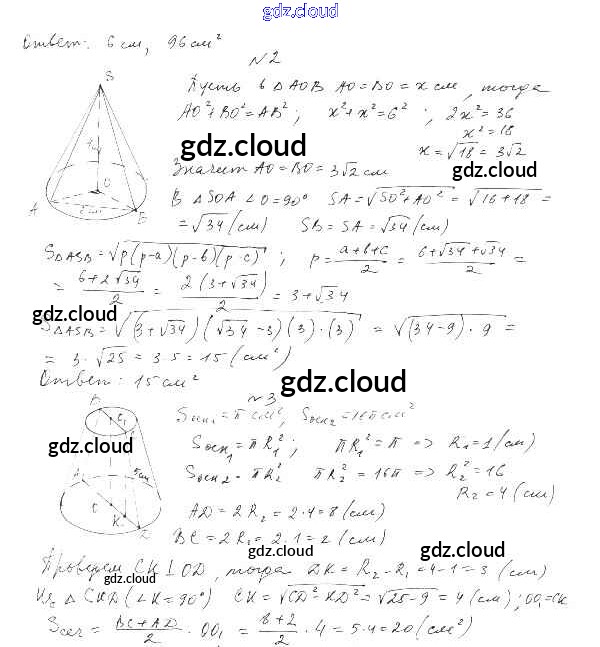 gdz.cloud
Ответ: 6 см, 96 см²
№2
Пусть в △AOB AO = BO = x см, тогда
AO² + BO² = AB² ; x² + x² = 6² ; 2x² = 36
x² = 18
x = √18 = 3√2
gdz.cloud
gdz.cloud
Значит AO = BO = 3√2 см
В △SOA ∠O = 90° SA = √SO² + AO² = √16 + 18 =
= √34 (см) SB = SA = √34 (см)
S
O
A
B
S△ASB = √p(p-a)(p-b)(p-c) ; p = a+b+c/2 = 6+√34+√34/2 =
= 6+2√34/2 = 2(3+√34)/2 = 3+√34
gdz.cloud
gdz.cloud
S△ASB = √(3+√34)(√34-3)(3)·(3) = √(34-9)·9 =
= 3·√25 = 3·5 = 15 (см²)
Ответ: 15 см²
gdz.cloud
№3
Sосн₁ = π см², Sосн₂ = 16π см²
Sосн₁ = πR₁² ; πR₁² = π => R₁ = 1 (см)
gdz.cloud
gdz.cloud
Sосн₂ = πR₂² πR₂² = 16π => R₂² = 16
R₂ = 4 (см)
5см
K
AD = 2R₂ = 2·4 = 8 (см)
BC = 2R₁ = 2·1 = 2 (см)
gdz.cloud
Проведем CK⊥OD, тогда DK = R₂ - R₁ = 4 - 1 = 3 (см)
gdz.cloud
gdz.cloud
Из △CKD (∠K = 90°) CK = √CD² - KD² = √25 - 9 = 4 (см); OO₁ = CK
Sсеч = BC+AD/2 · OO₁ = 8+2/2 · 4 = 5·4 = 20 (см²)
gdz.cloud